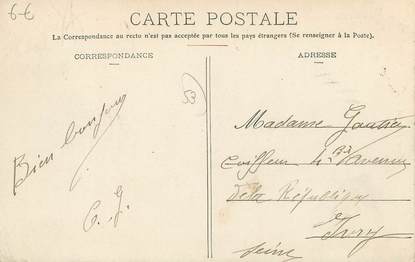 6-6
CARTE POSTALE
La Correspondance au recto n'est pas acceptée par tous les pays étrangers (Se renseigner à la Poste).
CORRESPONDANCE
ADRESSE
53
Bien bonjour
C. J.
Madame Gautier
Coiffeur 4 Bis Avenue
De la République
Ivry
Seine